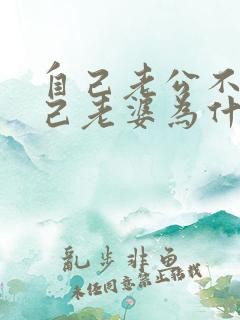 自己老公不
己老婆為什
亂步非魚
未經同意禁止轉載